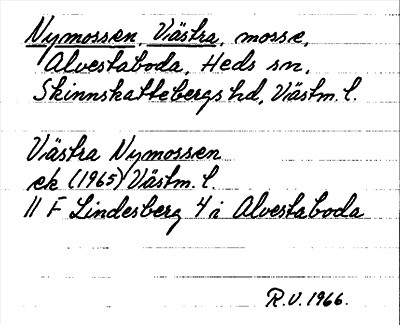 Nymossen, Västra, mosse,
Alvestaboda, Heds sn,
Skinnskattebergs hd, Västm. l.
Västra Nymossen
ek (1965) Västm. l.
11 F Lindesberg 4 i Alvestaboda
R.V. 1966.